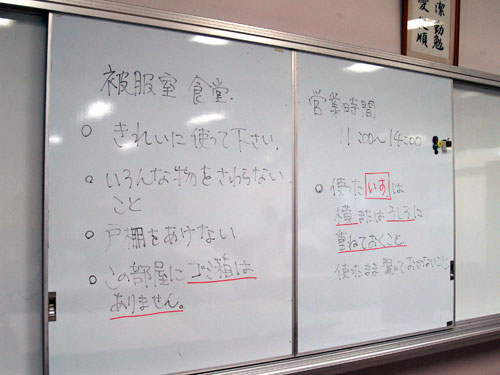 被服室 食堂.
○ きれいに使って下さい.
○ いろんな物をさわらない
こと
○ 戸棚をあけない
○ この部屋にゴミ箱は
ありません。
営業時間
11:00〜14:00
○ 使ったいすは
横またはうしろに
重ねておくこと
使ったまま
おかないこと